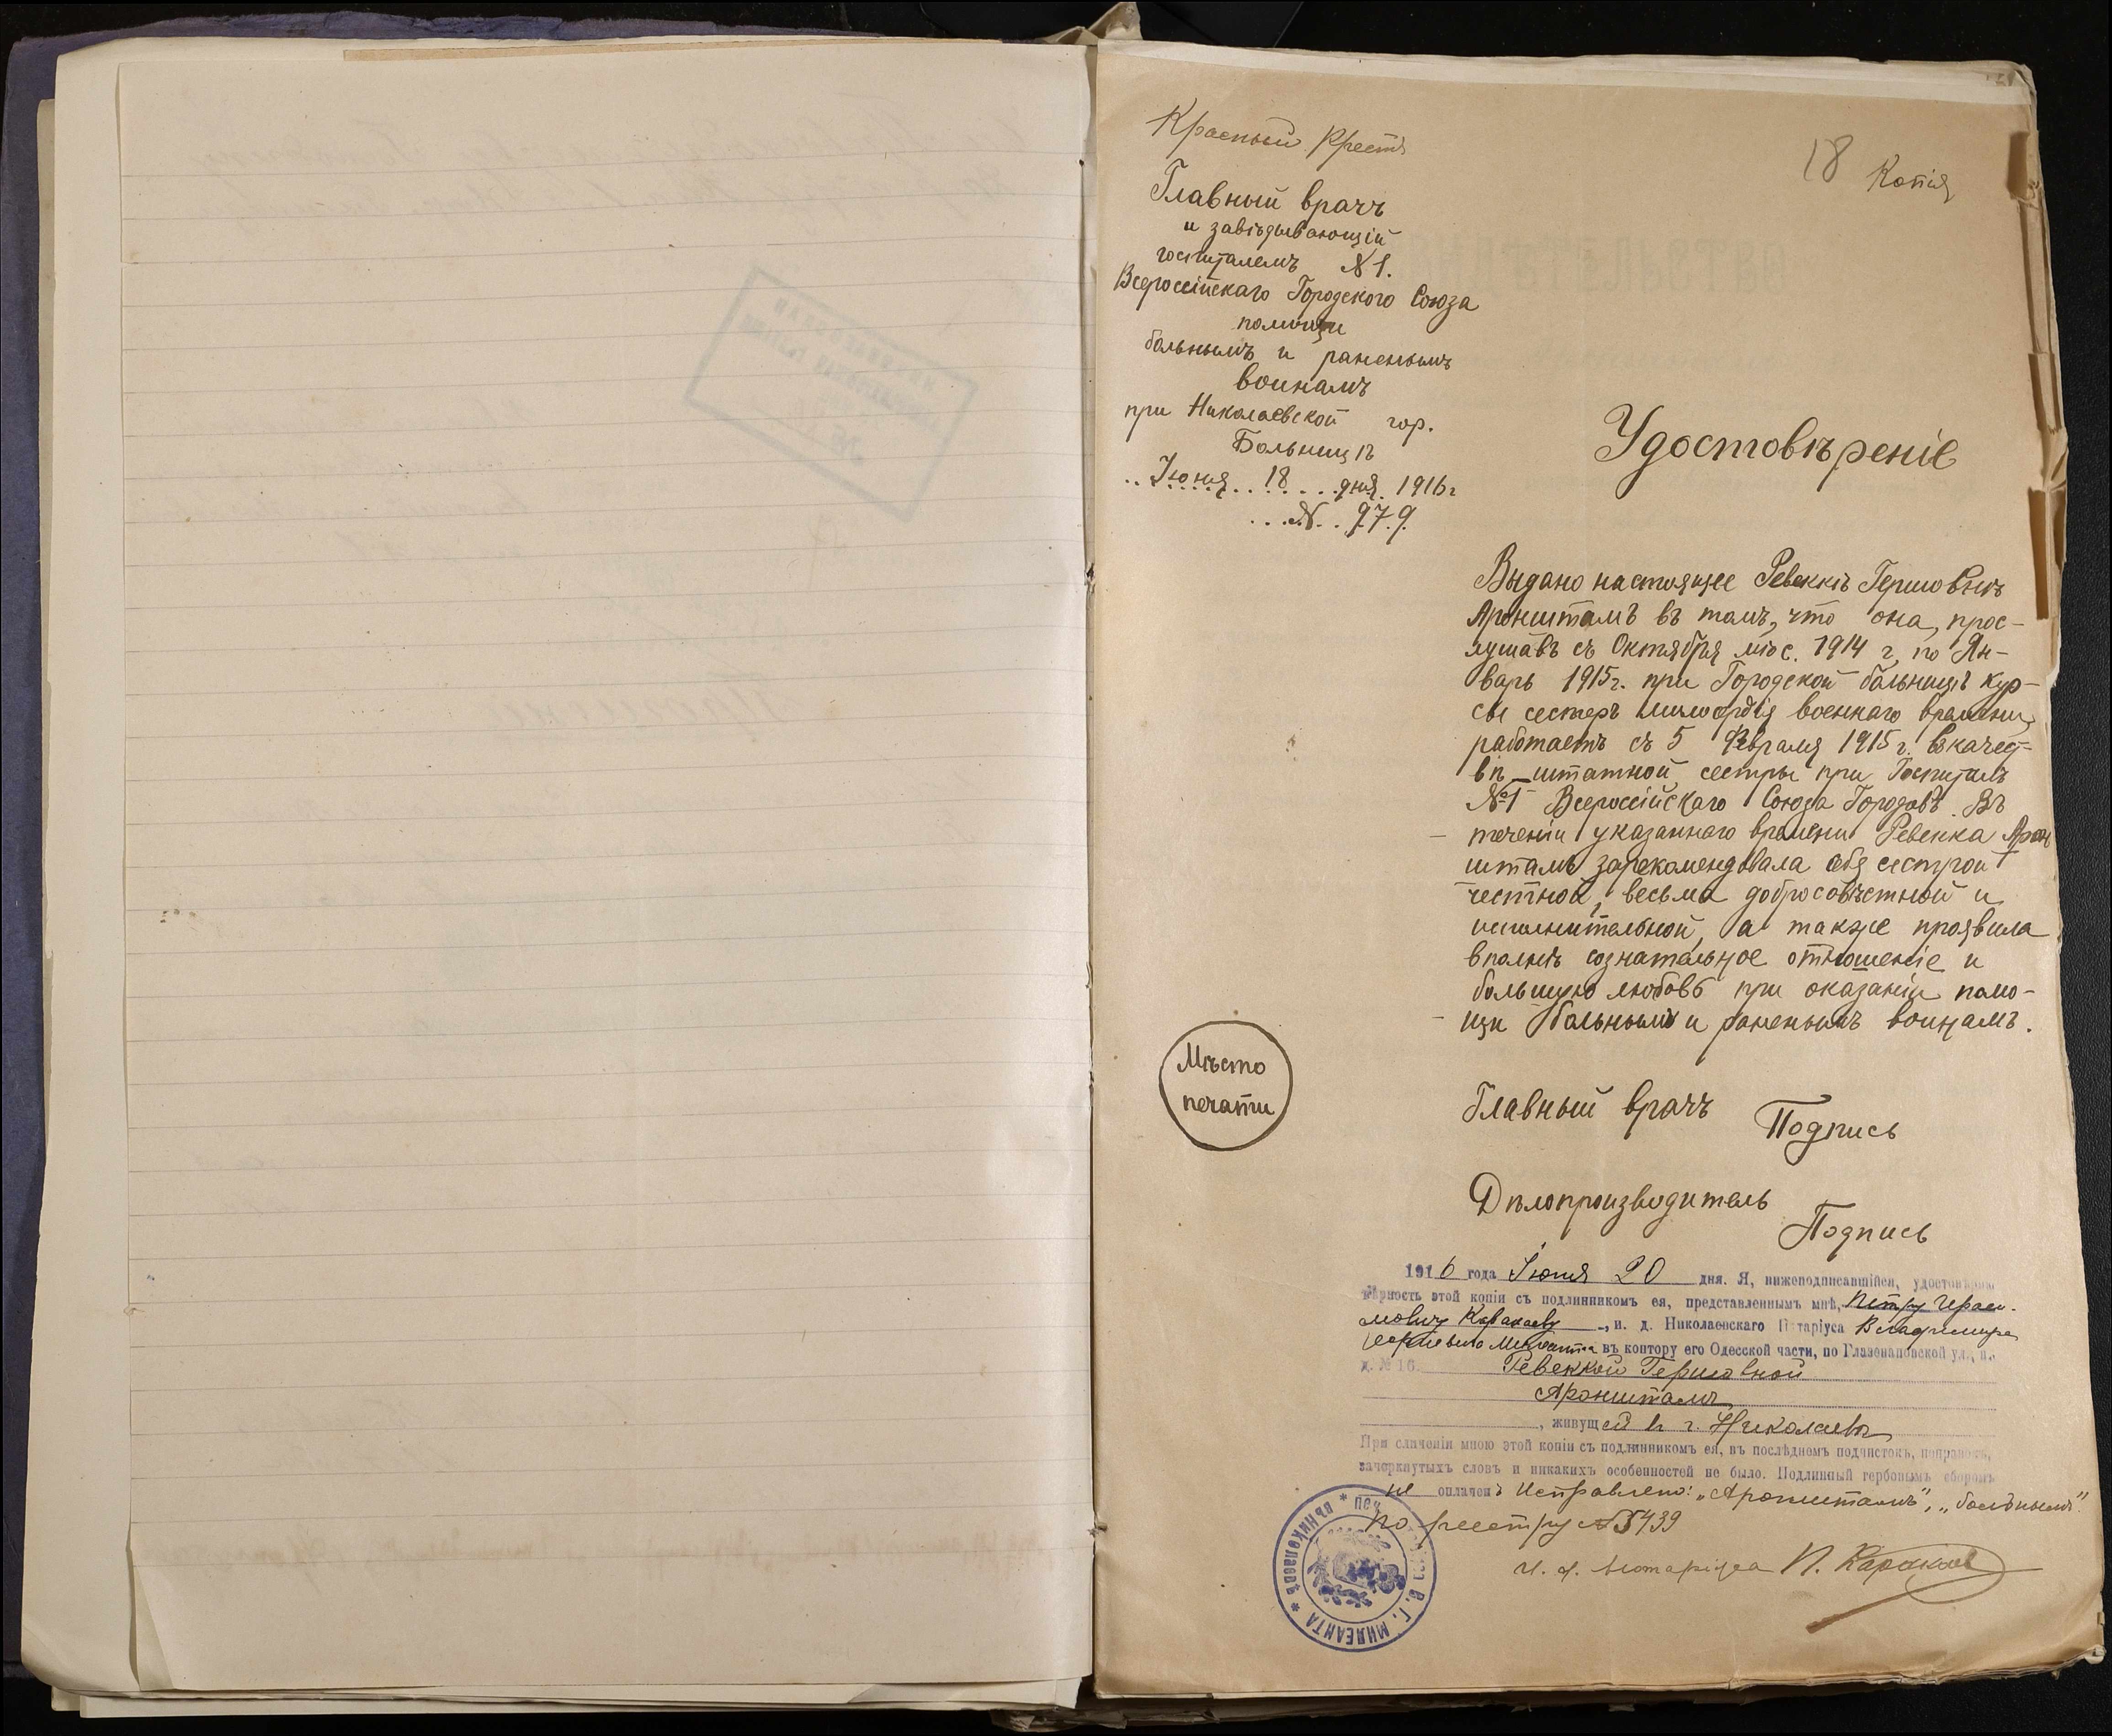 18 Копія
Красный Крестъ
Главный врачъ
и завѣдывающій
госпиталемъ №1.
Всероссійскаго Городского Союза
помощи
больнымъ и раненымъ
воинамъ
при Николаевской гор.
Больницѣ
Іюня 18 дня 1916 г
№ 979.
Удостовѣреніе
Выдано настоящее Ревеккѣ Гершовнѣ
Аронштамъ въ томъ, что она, прос-
лушавъ съ Октября мѣс. 1914 г. по Ян-
варь 1915 г. при Городской больницѣ кур-
сы сестеръ милосердія военнаго времени,
работаетъ съ 5 Февраля 1915 г. въ качест-
вѣ штатной сестры при Госпиталѣ
№1 Всероссійскаго Союза Городовъ. Въ
теченіи указаннаго времени Ревекка Арон
штамъ зарекомендовала себя сестрой
честной, весьма добросовѣстной и
исполнительной, а также проявила
вполнѣ сознательное отношеніе и
большую любовь при оказаніи помо-
щи больнымъ и раненымъ воинамъ.
Мѣсто
печати
Главный врачъ
Подпись
Дѣлопроизводитель
Подпись
1916 года Іюня 20 дня. Я, нижеподписавшійся, удостовѣряю
вѣрность этой копіи съ подлинникомъ ея, представленнымъ мнѣ, Петру Гераси-
мовичу Каракаеву, и. д. Николаевскаго Нотаріуса Владимира
Георгіевича Милеанта въ контору его Одесской части, по Глазенаповской ул., въ
д. № 16. Ревеккой Гершовной
Аронштамъ
, живущей въ г. Николаевѣ
При сличеніи мною этой копіи съ подлинникомъ ея, въ послѣднемъ подчистокъ, приписокъ,
зачеркнутыхъ словъ и никакихъ особенностей не было. Подлинный гербовымъ сборомъ
не оплаченъ Исправлено: „Аронштамъ", „больнымъ".
По реестру № 5439
И. д. Нотаріуса П. Каракаев
В. Г. МИЛЕАНТА * ВЪ НИКОЛАЕВѢ *